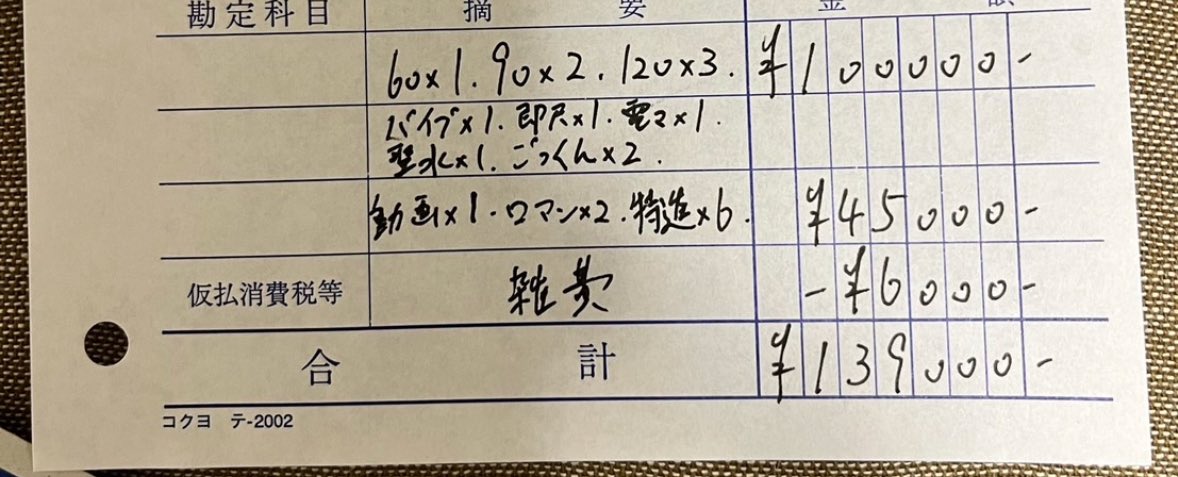 勘定科目 摘要 金額
60×1. 90×2. 120×3. ¥100000-
バイブ×1. 即尺×1. 電マ×1.
聖水×1. ごっくん×2.
動画×1. ロマン×2. 特進×6. ¥45000-
仮払消費税等 雑費 -¥6000-
合計 ¥139000-
コクヨ テ-2002